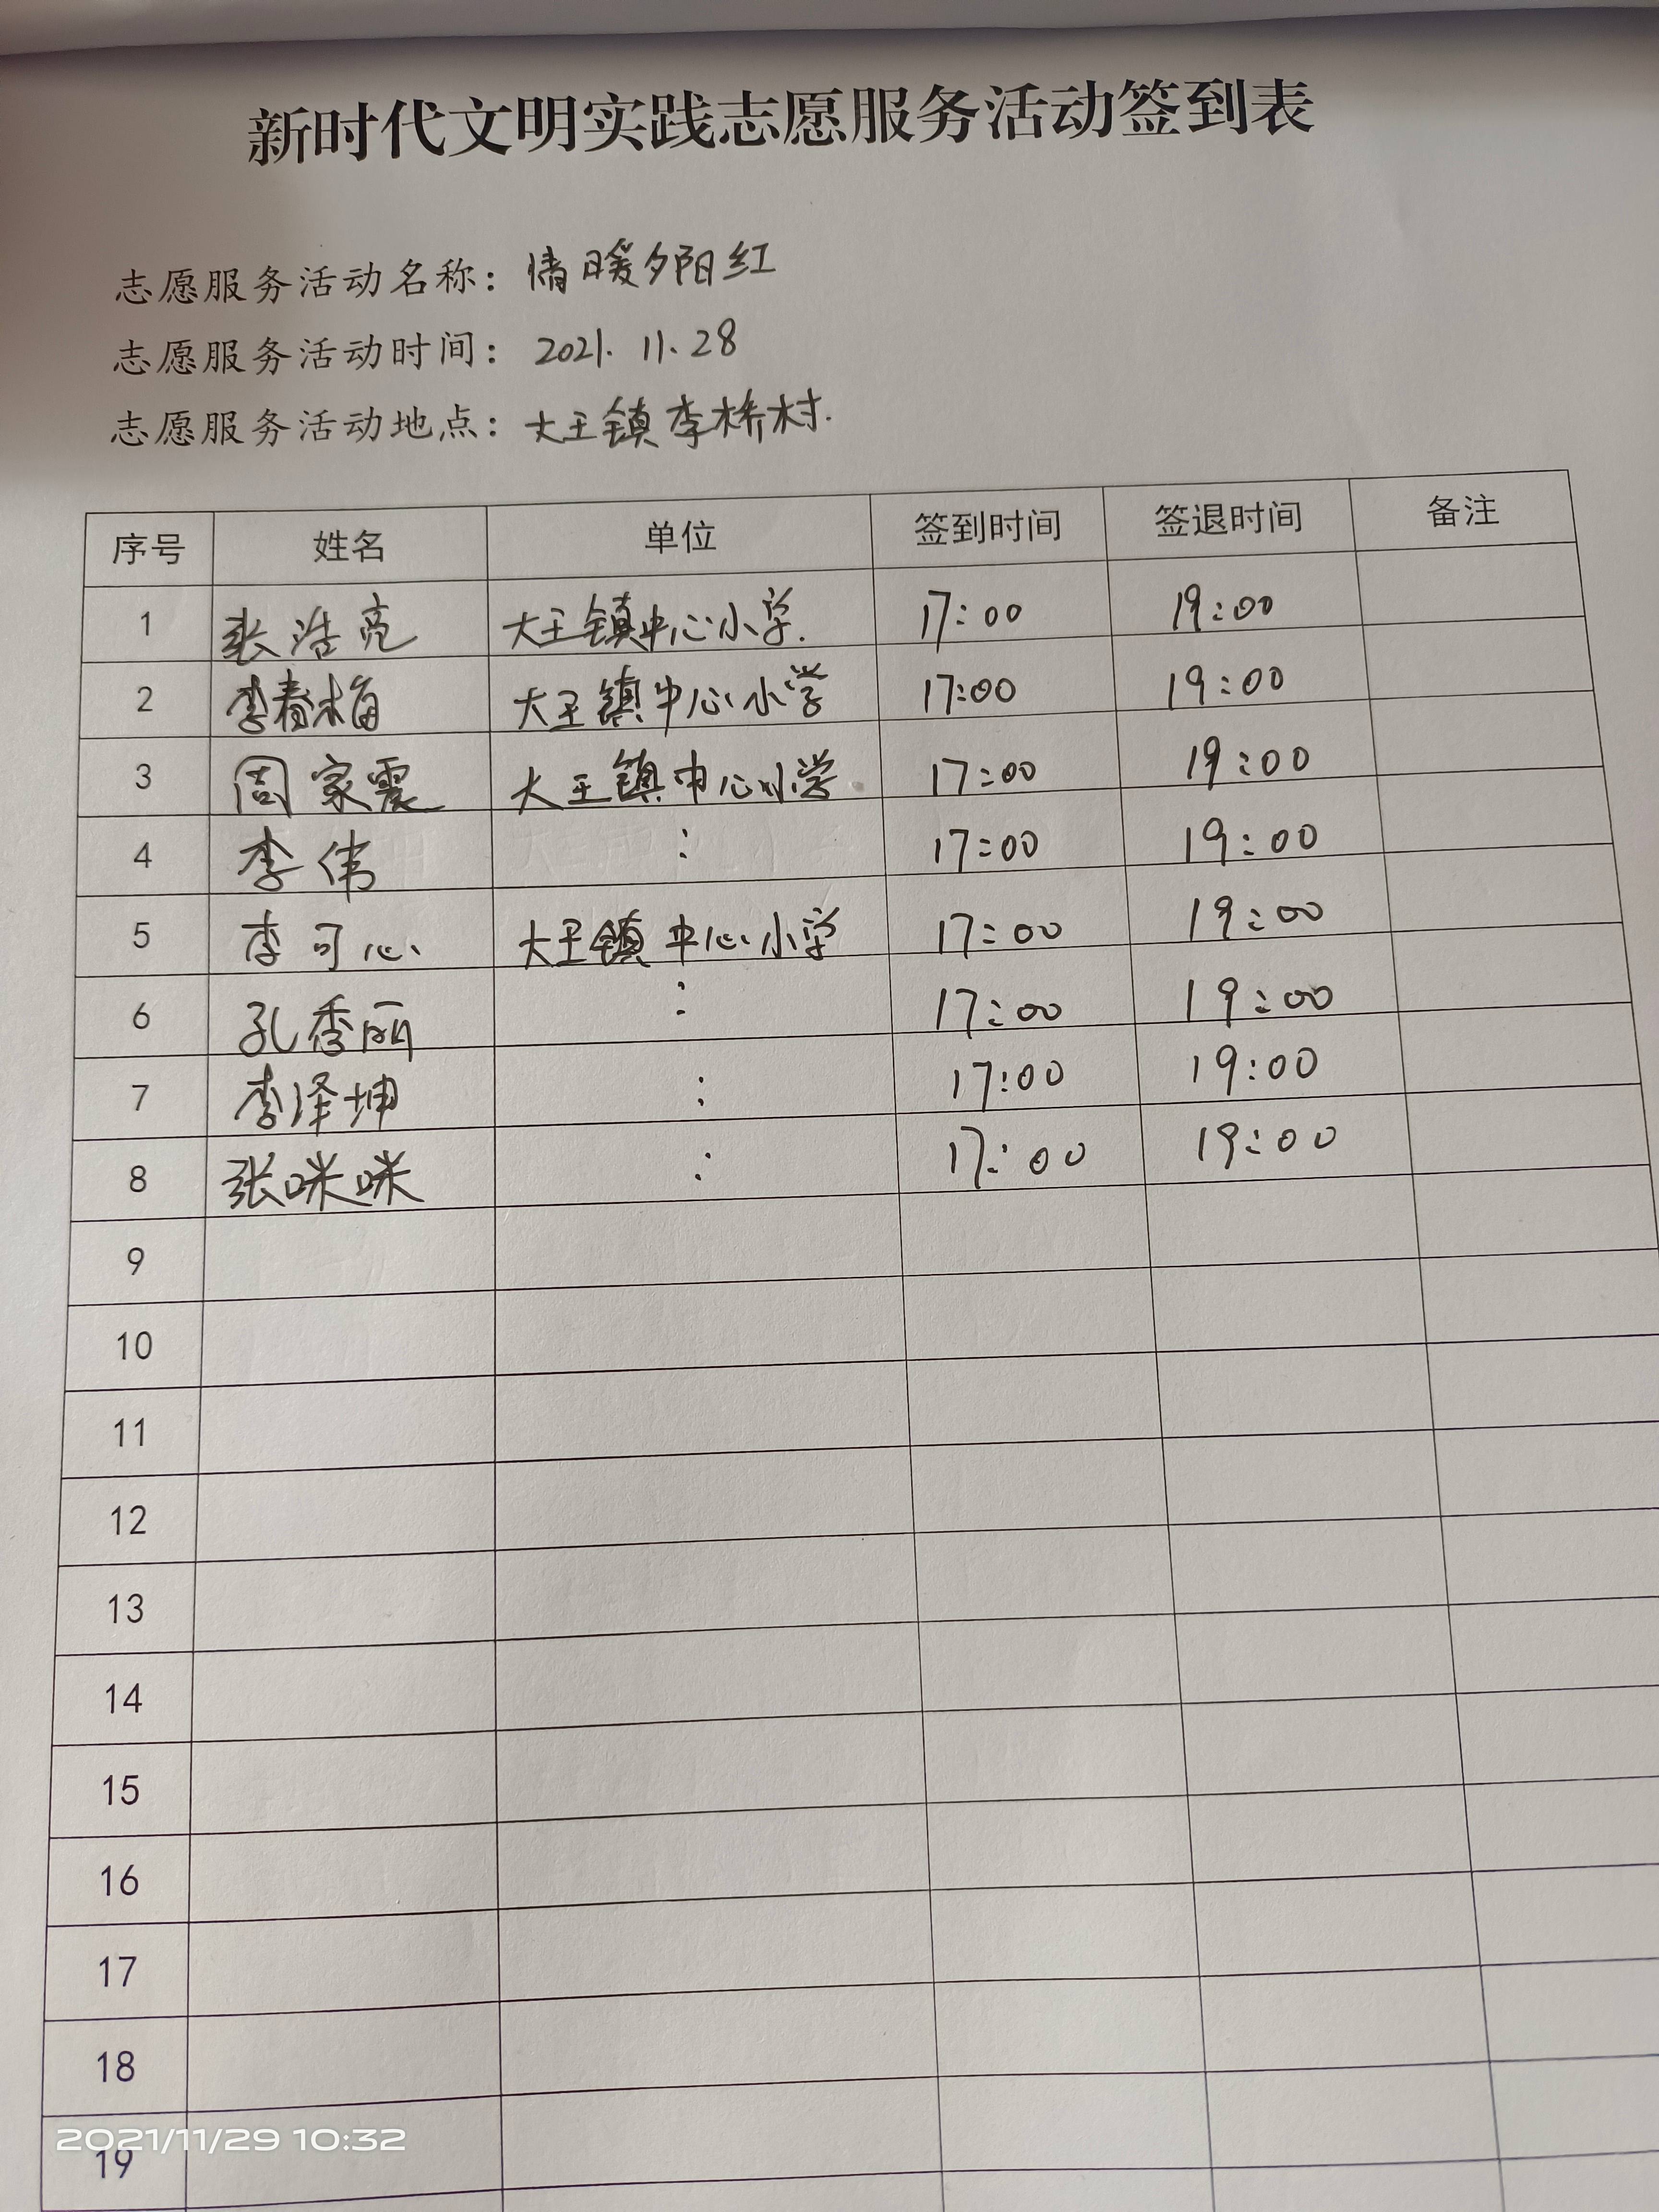 新时代文明实践志愿服务活动签到表
志愿服务活动名称：情暖夕阳红
志愿服务活动时间：2021.11.28
志愿服务活动地点：大王镇李桥村.
序号 姓名 单位 签到时间 签退时间 备注
1 张浩亮 大王镇中心小学. 17:00 19:00
2 李春梅 大王镇中心小学 17:00 19:00
3 周家震 大王镇中心小学 17:00 19:00
4 李伟 : 17:00 19:00
5 李可心 大王镇中心小学 17:00 19:00
6 孔香丽 : 17:00 19:00
7 李泽坤 : 17:00 19:00
8 张咪咪 : 17:00 19:00
9
10
11
12
13
14
15
16
17
18
2021/11/29 10:32
19